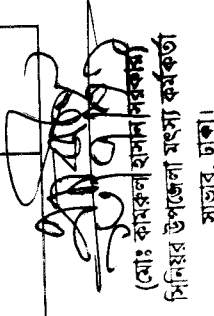 (মোঃ কামরুল হাসান সরকার)
সিনিয়র উপজেলা মৎস্য কর্মকর্তা
সাভার, ঢাকা।